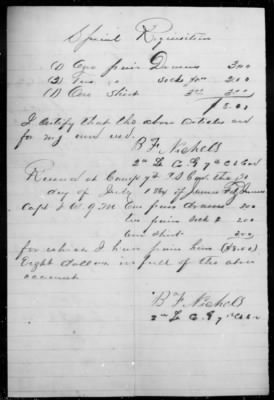 Special Requisition
(1) One pair Drawers 3.00
(2) Two " socks 2.00
(1) One Shirt 3.00
8.00
I certify that the above articles are
for my own use.
B F Nichols
2nd Lt Co
Received at Camp the
day of July of James
Capt & A Q M One pair drawers 300
two pairs socks 2 200
One shirt 300
for which I have paid him ($8.00)
Eight dollars in full of the above
account.
B F Nichols
2nd Lt Co